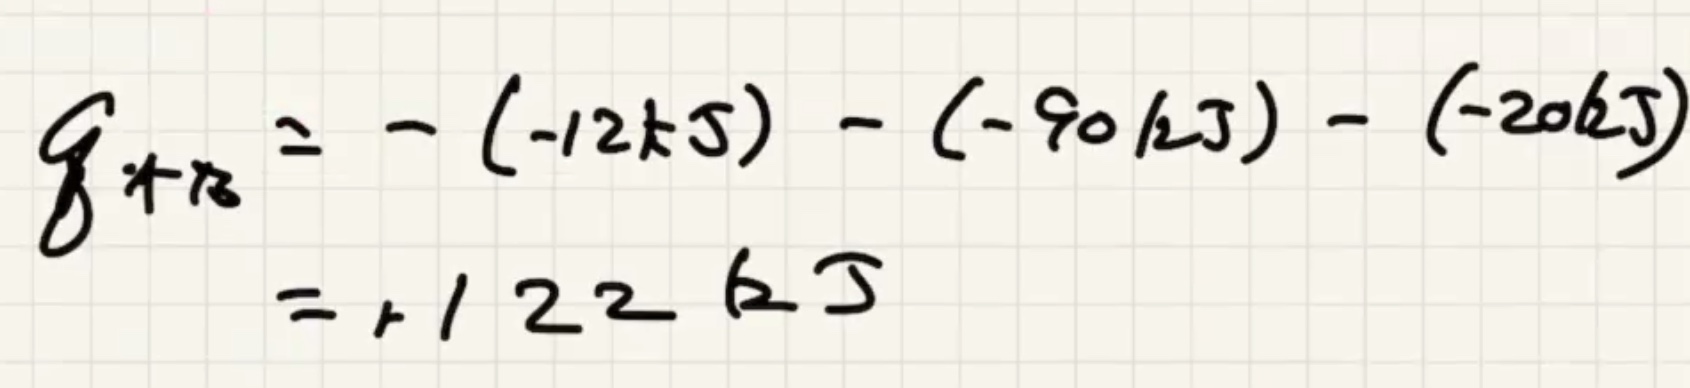 q = -(-12kJ) - (-90kJ) - (-20kJ)
= +122 kJ